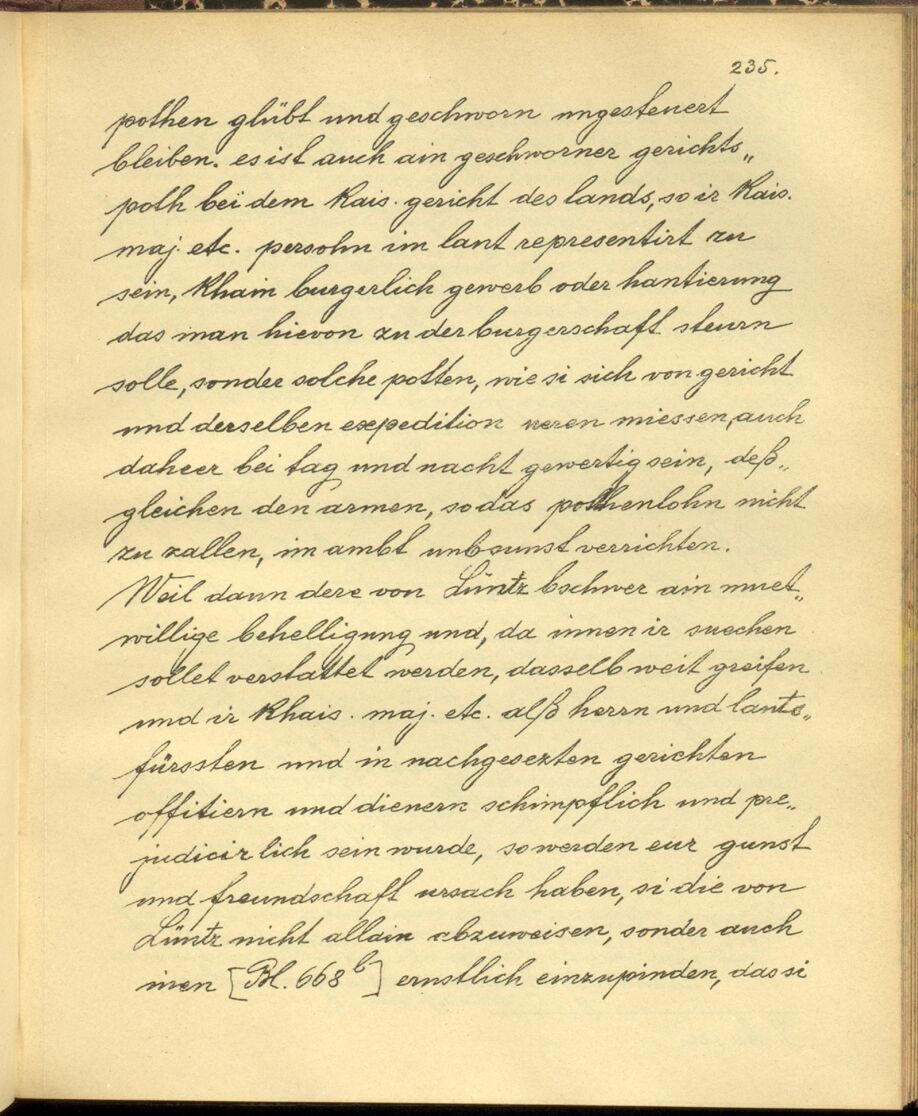 235.
pothen glübt und geschworn ungesteuert
bleiben. es ist auch ain geschworner gerichts„
poth bei dem Kais. gericht des lands, so ir Kais.
maj. etc. persohn im lant representirt zu
sein, Khain burgerlich gewerb oder hantierung
das man hievon zu der burgerschaft steurn
solle, sonder solche potten, wie si sich von gericht
und derselben expedition neren miessen, auch
daheer bei tag und nacht gewertig sein, deß„
gleichen den armen, so das pothenlohn nicht
zu zallen, im ambt umbsunst verrichten.
Weil dann dere von Lüntz bschwer ain muet„
willige behelligung und, da innen ir suechen
sollet verstattet werden, dasselb weit greifen
und ir Khais. maj. etc. alß herrn und lants„
fürssten und in nachgesezten gerichten
offitiern und dienern schimpflich und pre„
judicirlich sein wurde, so werden eur gunst
und freundschaft ursach haben, si die von
Lüntz nicht allain abzuweisen, sonder auch
inen [Bl. 668 b] ernstlich einzupinden, das si